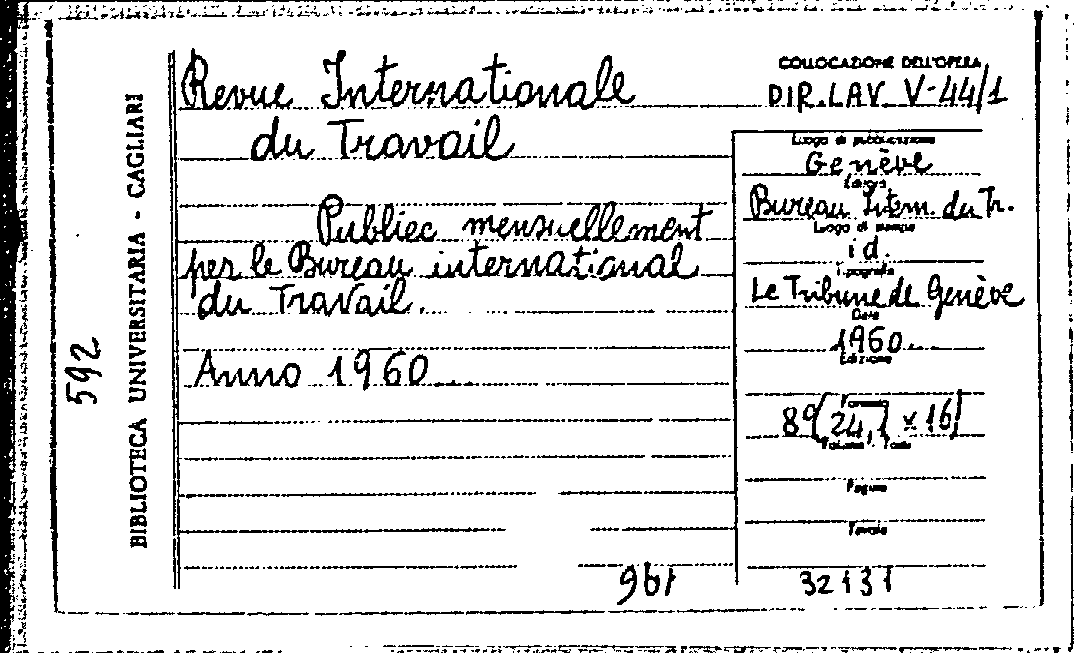 592
BIBLIOTECA UNIVERSITARIA - CAGLIARI
Revue Internationale
du Travail
Publiec mensuellement
per le Bureau international
du Travail.
Anno 1960
COLLOCAZIONE DELL'OPERA
DIR. LAV. V-44/1
Luogo di pubblicazione
Genève
Editore
Bureau Intern. du Tr.
Luogo di stampa
id.
Tipografia
Le Tribune de Genève
Data
1960
Edizione
Formato
8º (24,1 x 16)
Volume Tomo
Pagine
Tavole
961
32131